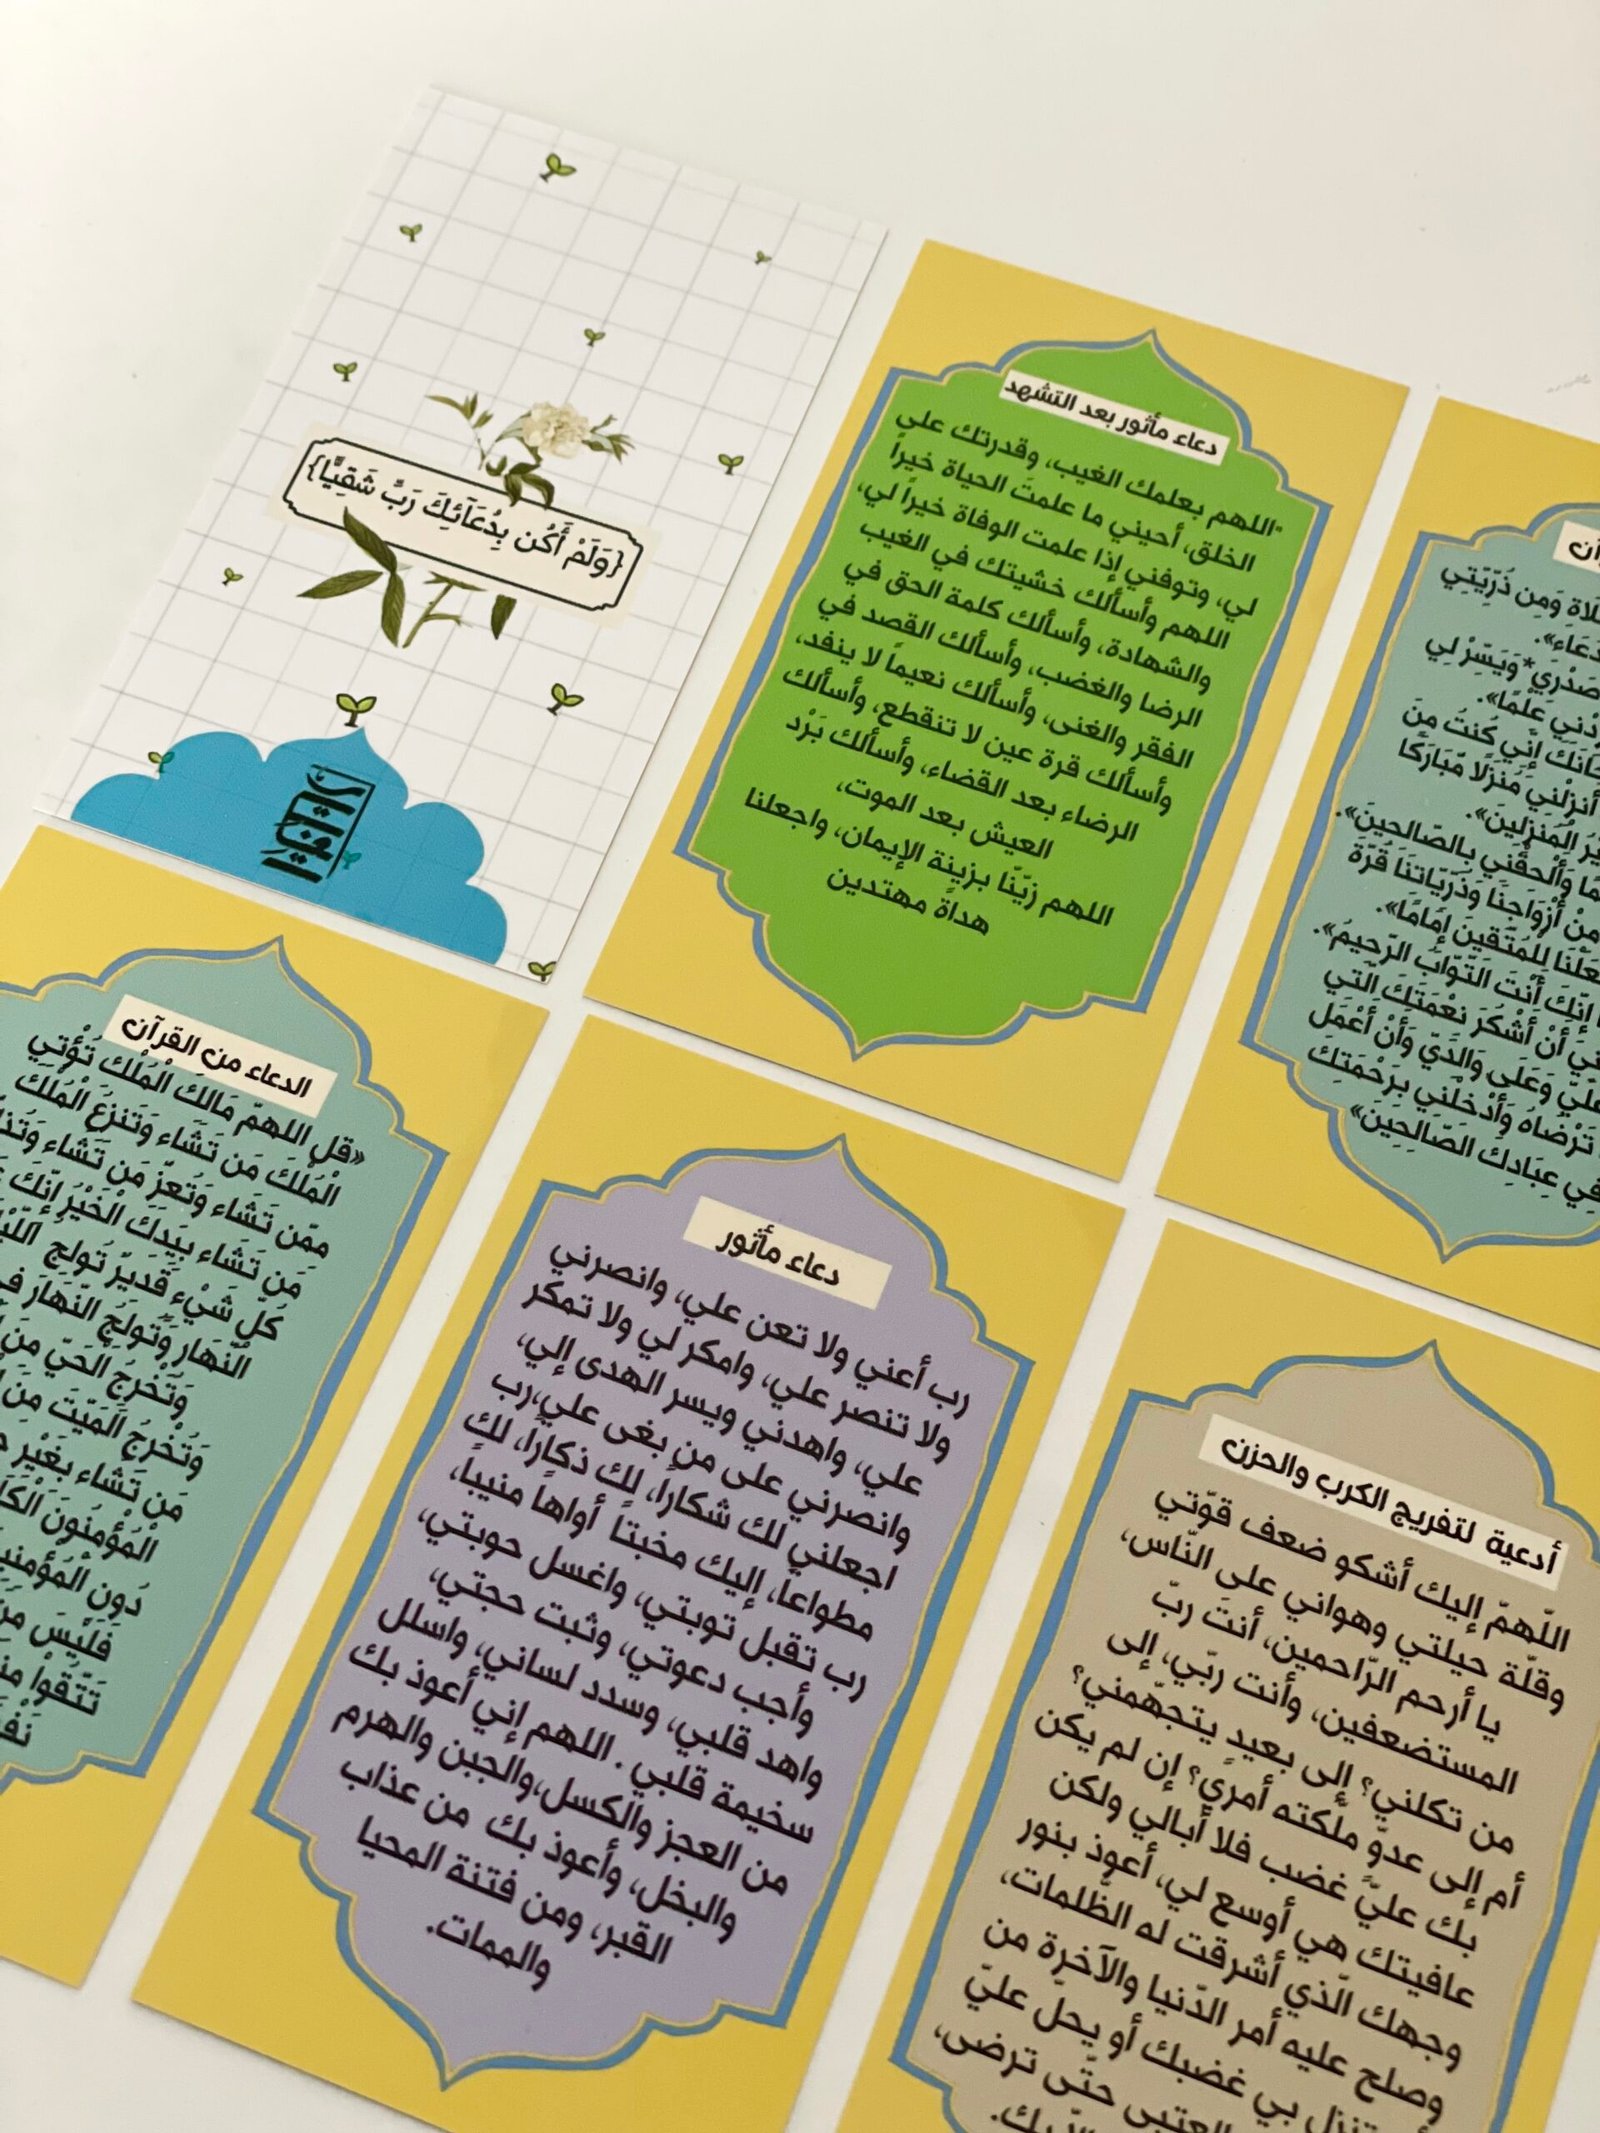 {وَلَمْ أَكُن بِدُعَآئِكَ رَبِّ شَقِيًّا}
دعاء مأثور بعد التشهد
"اللهم بعلمك الغيب، وقدرتك على
الخلق، أحيني ما علمتَ الحياة خيراً
لي، وتوفني إذا علمت الوفاة خيراً لي،
اللهم وأسألك خشيتك في الغيب
والشهادة، وأسألك كلمة الحق في
الرضا والغضب، وأسألك القصد في
الفقر والغنى، وأسألك نعيماً لا ينفد،
وأسألك قرة عين لا تنقطع، وأسألك
الرضاء بعد القضاء، وأسألك بَرْد
العيش بعد الموت،
اللهم زيّنّا بزينة الإيمان، واجعلنا
هداةً مهتدين
وَمِن ذُرِّيَّتِي
دُعَاء».
صَدْرِي*وَيَسِّرْ لِي
زِدْنِي عِلْمًا».
إِنِّي كُنتُ مِنَ
أَنزِلْنِي مُنزَلًا مُّبَارَكًا
الْمُنزِلِينَ».
وَأَلْحِقْنِي بِالصَّالِحِينَ».
مِنْ أَزْوَاجِنَا وَذُرِّيَّاتِنَا قُرَّةَ
لِلْمُتَّقِينَ إِمَامًا».
إِنَّكَ أَنْتَ التَّوَّابُ الرَّحِيمُ».
أَنْ أَشْكُرَ نِعْمَتَكَ الَّتِي
عَلَيَّ وَعَلَى وَالِدَيَّ وَأَنْ أَعْمَلَ
تَرْضَاهُ وَأَدْخِلْنِي بِرَحْمَتِكَ
فِي عِبَادِكَ الصَّالِحِينَ»
الدعاء من القرآن
«قل اللهمّ مَالِكَ الْمُلْكِ تُؤْتِي
الْمُلْكَ مَن تَشَاء وَتَنزِعُ الْمُلْكَ
مِمَّن تَشَاء وَتُعِزّ مَن تَشَاء
مَن تَشَاء بِيَدِكَ الْخَيْرُ إِنَّكَ
كُلّ شَيْءٍ قَدِيرٌ تُولِجُ
النَّهَارِ وَتُولِجُ النَّهَارَ
وَتُخْرِجُ الْحَيَّ مِنَ
وَتُخْرِجُ الْمَيِّتَ مِنَ
مَن تَشَاء بِغَيْرِ
الْمُؤْمِنُونَ
دُونِ
فَلَيْسَ
تَتَّقُواْ
دعاء مأثور
رب أعني ولا تعن علي، وانصرني
ولا تنصر علي، وامكر لي ولا تمكر
علي، واهدني ويسر الهدى إلي،
وانصرني على من بغى علي،رب
اجعلني لك شكارًا، لك ذكارًا، لك
مطواعاً، إليك مخبتاً أواهاً منيبا،
رب تقبل توبتي، واغسل حوبتي،
وأجب دعوتي، وثبت حجتي،
واهد قلبي، وسدد لساني، واسلل
سخيمة قلبي . اللهم إني أعوذ بك
من العجز والكسل،والجبن والهرم
والبخل، وأعوذ بك من عذاب
القبر، ومن فتنة المحيا
والممات.
أدعية لتفريج الكرب والحزن
اللّهمّ إليك أشكو ضعف قوّتي
وقلّة حيلتي وهواني على النّاس،
يا أرحم الرّاحمين، أنتَ ربّ
المستضعفين، وأنت ربّي، إلى
من تكلني؟ إلى بعيد يتجهّمني؟
أم إلى عدوّ ملّكته أمري؟ إن لم يكن
بك عليّ غضب فلا أبالي ولكن
عافيتك هي أوسع لي، أعوذ بنور
وجهك الّذي أشرقت له الظّلمات،
وصلح عليه أمر الدّنيا والآخرة من
تنزل بي غضبك أو يحلّ عليّ
العتبى حتّى ترضى،